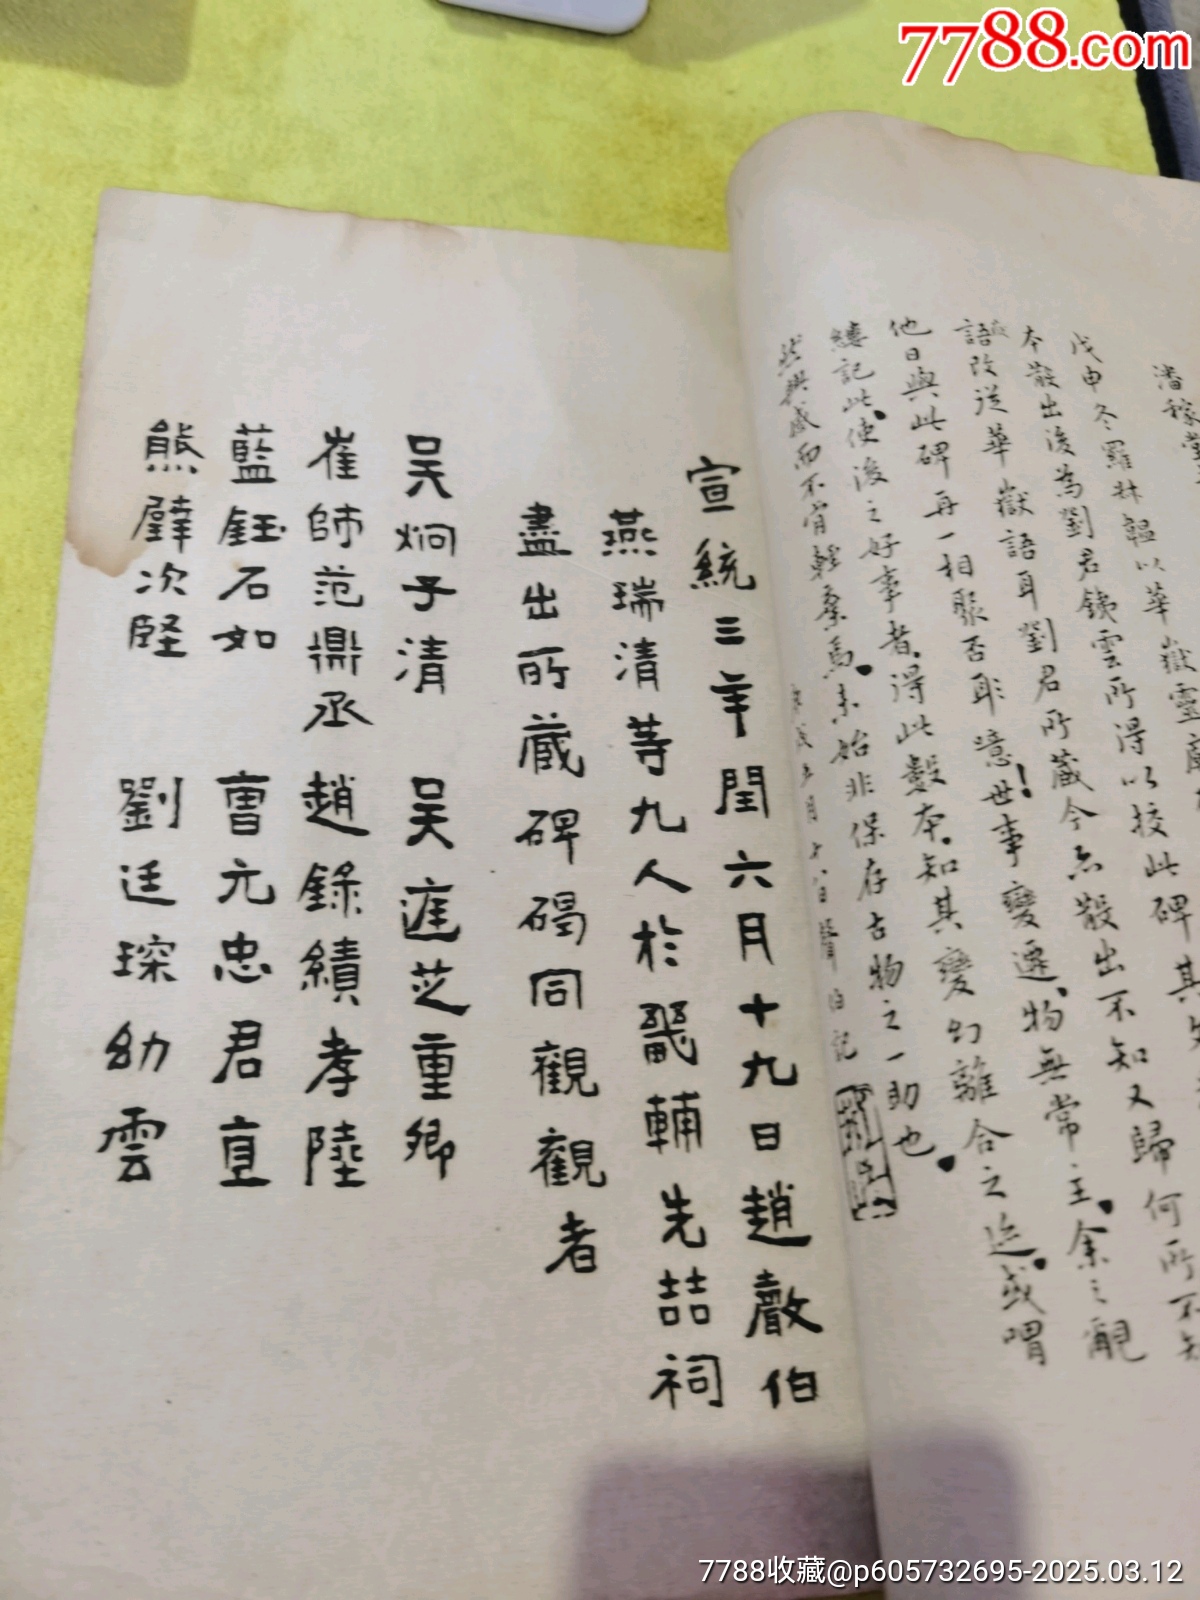 7788.com
潘稼堂
戊申冬羅楙韞以華嶽靈廟
本散出後為劉君鐵雲所得以校此碑其
語改從華嶽語耳劉君所藏今亦散出不知又歸何所不知
他日與此碑再一相聚否耶噫世事變遷物無常主余之覩
縷記此使後之好事者得此數本知其變幻離合之迹或喟
然興感而不肯輕棄焉未始非保存古物之一助也
庚戌五月十八日聲伯記
宣統三年閏六月十九日趙聲伯
燕瑞清等九人於畿輔先喆祠
盡出所藏碑碣同觀觀者
吴炯子清 吴蓮芝重卿
崔師范鼎丞 趙錄績孝陸
藍鈺石如 曹元忠君直
熊㠲次堅 劉廷琛幼雲
7788收藏@p605732695-2025.03.12